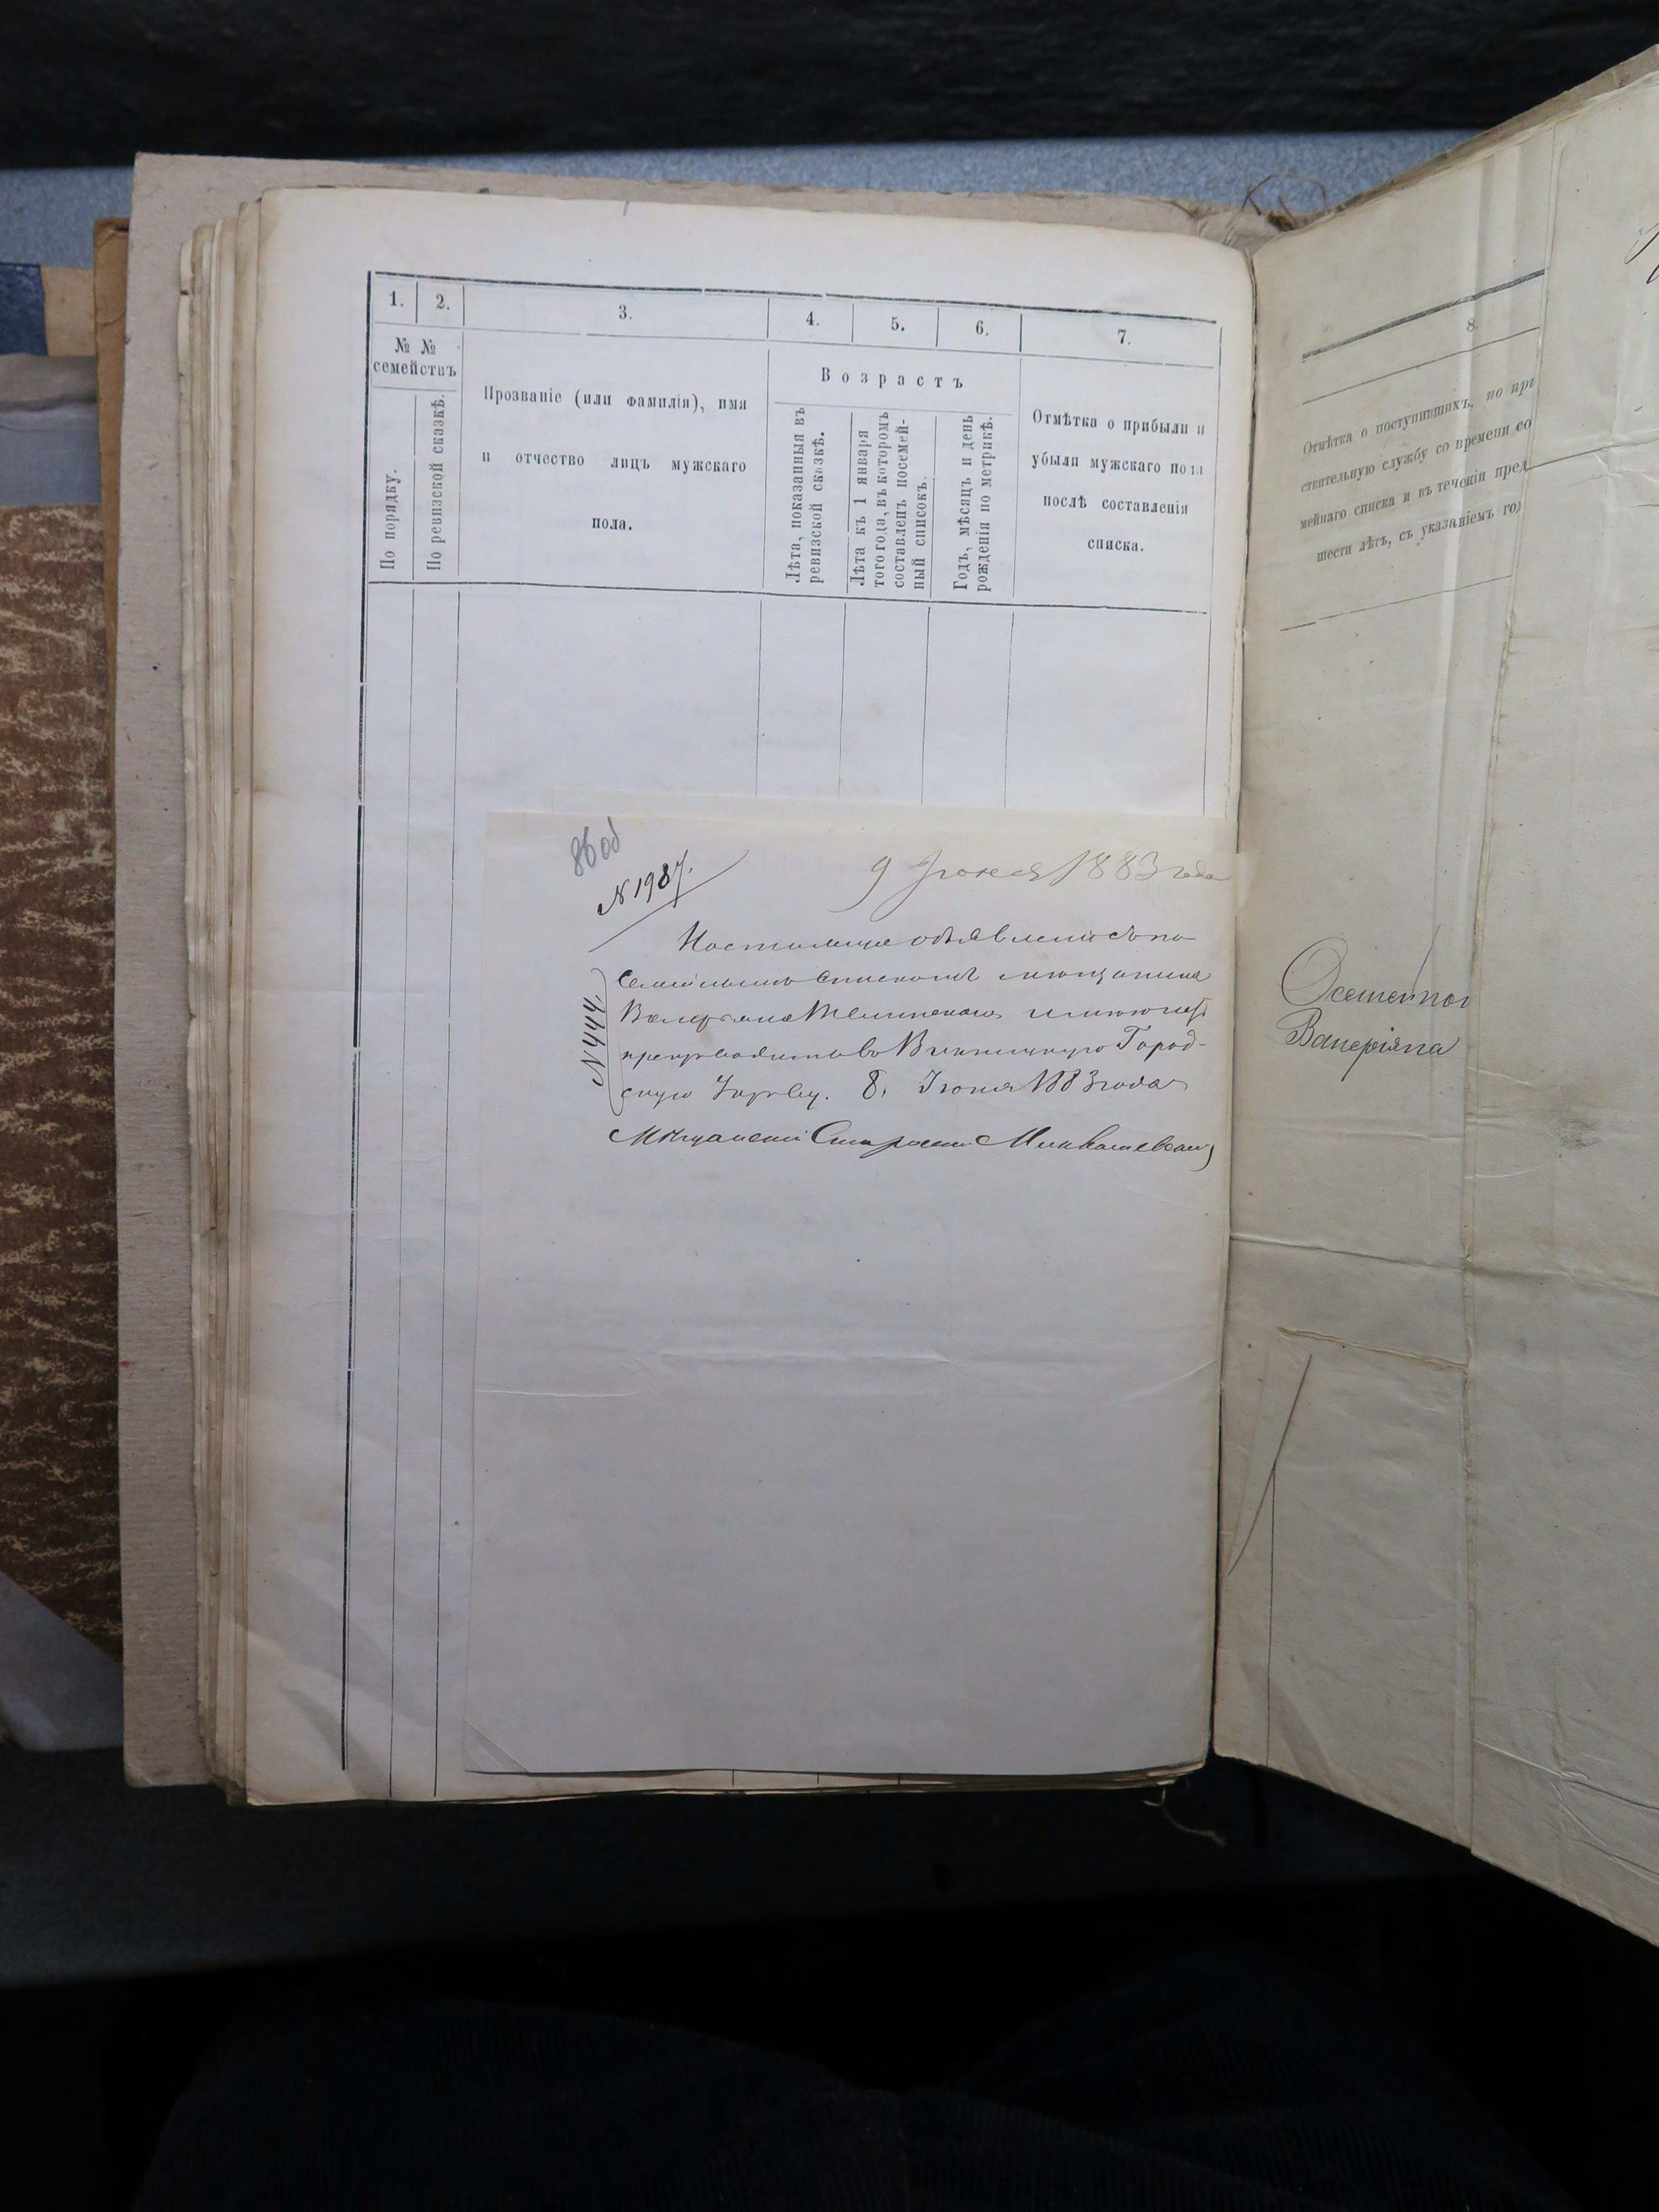 1.
2.
3.
4.
5.
6.
7.
№ №
семействъ
По порядку.
По ревизской сказкѣ.
Прозваніе (или фамилія), имя
и отчество лицъ мужскаго
пола.
Возрастъ
Лѣта, показанныя въ
ревизской сказкѣ.
Лѣта къ 1 января
того года, въ которомъ
составленъ посемей-
ный списокъ.
Годъ, мѣсяцъ и день
рожденія по метрикѣ.
Отмѣтка о прибыли и
убыли мужскаго пола
послѣ составленія
списка.
86 об
N 1987.
9 Іюня 1883 года
Настоящее объявленіе съ по-
семейнымъ спискомъ мѣщанина
Валерьяна
препроводить во Винницкую Город-
скую Управу. 8. Іюня 1883 года
N 444
Мѣщанскій Староста
8
Отмѣтка о поступившихъ, по при
ствительную службу со времени со
мейнаго списка и въ теченіи пред
шести лѣтъ, съ указаніемъ год
Валеріяна